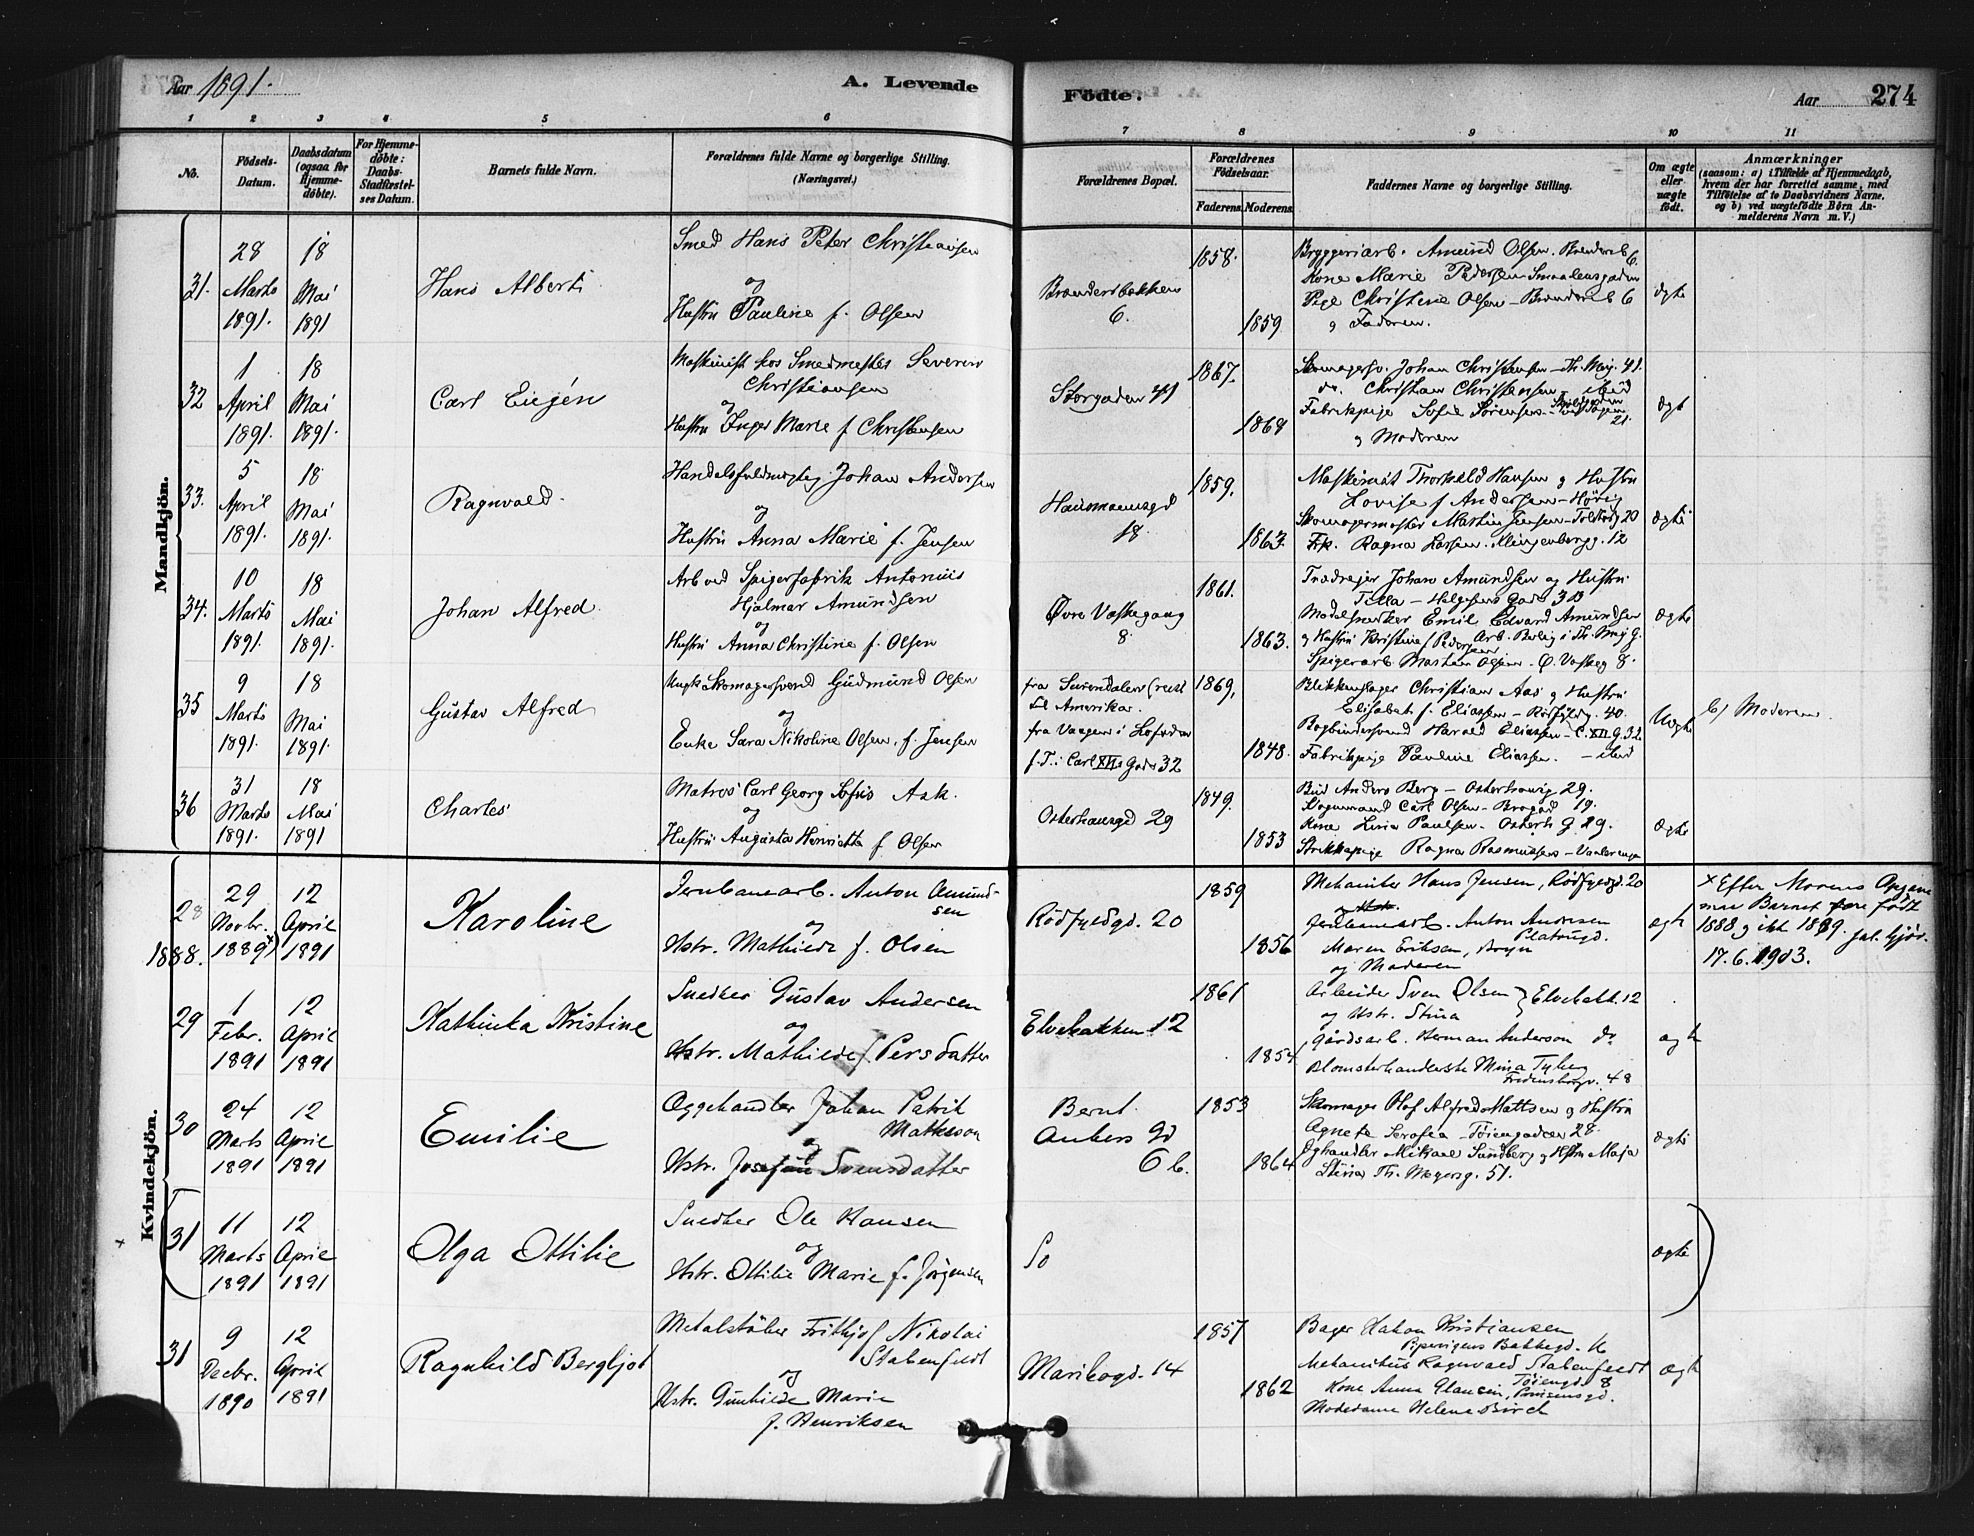 Aar 1891.
A. Levende
Födte.
Aar
274
1 2 3 4 5 6 7 8 9 10 11
No.
Födsels-
Datum.
Daabsdatum
(ogsaa for
Hjemme-
döbte).
For Hjemme-
döbte:
Daabs-
Stadfæstel-
ses Datum.
Barnets fulde Navn.
Forældrenes fulde Navne og borgerlige Stilling.
(Næringsvei.)
Forældrenes Bopæl.
Forældrenes
Födselsaar.
Faderens. Moderens.
Faddernes Navne og borgerlige Stilling.
Om ægte
eller
uægte
födt.
Anmærkninger
(saasom: a) i Tilfælde af Hjemmedaab,
hvem der har forrettet samme, med
Tilföielse af to Daabsvidners Navne,
og b) ved uægtefödte Börn An-
melderens Navn m. V.)
Mandkjön.
31.
28
Marts
1891.
18
Mai
1891
Hans Albert
Smed Hans Peter Christiansen
og
Hustru Pauline f. Olsen
Brænderibakken
6.
1858.
1859
Bryggeriarb. Amund Olsen. Brænderib 6.
Kone Marie Pedersen Smaalensgaden
Pige Christine Olsen - Brænderib 6
og Faderen.
ægte
32
1
April
1891.
18
Mai
1891.
Carl Eugén
Maskinist hos Smedmester Severin
Christiansen
og
Hustru Inger Marie f. Christensen
Storgaden 41
1867.
1869
Skomagersv. Johan Christensen - Th. Meig. 41.
do. Christian Christensen - ibid
Fabrikpige Sofie Sörensen
21.
og Moderen
ægt
33.
5
April
1891.
18
Mai
1891.
Ragnvald.
Handelsfuldmægtig Johan Andersen
og
Hustru Anna Marie f. Jensen
Hausmannsgd
18.
1859.
1863.
Maskinist Thorvald Hansen og Hustru
Lovise f. Andersen
Skomagermester Martin Jensen - Toldbodg 20
Frk. Ragna Larsen. Klingenbergg. 12
ægte
34.
10
Marts
1891.
18
Mai
1891.
Johan Alfred
Arb. ved Spigerfabrik Antonius
Hjalmar Amundsen
og
Hustru Anna Christine f. Olsen
Övre Vaskegang
8.
1861.
1863.
Trædreier Johan Amundsen og Hustru
Tilla - Helgesens Gade 30
Modelsnedker Emil Edvard Amundsen
og Hustru Kristine f. Pedersen Arb. Bolig i Th. Meyg.
Spigerarb. Martin Olsen. Ö. Vaskeg 8.
ægte
35
9
Marts
1891.
18
Mai
1891.
Gustav Alfred
Ungk. Skomagersvend Gudmund Olsen
og
Enke Sara Nikoline Olsen, f. Jensen
fra Surendalen (reist
til Amerika.
fra Vaagen i Lofoten
f. T. i Carl XII's Gade 32
1869,
1848.
Blikkenslager Christian Aas og Hustru
Elisabet f. Eliassen - Rödfyldg. 40.
Bogbindersvend Harald Eliassen - C. XII G. 32
Fabrikpige Pauline Eliassen. - ibid
Uægte
b) Moderen.
36
31
Marts
1891.
18
Mai
1891
Charles
Matros Carl Georg Sofus Ask.
og
Hustru Augusta Henriette f. Olsen
Osterhausgd 29
1849.
1853
Bud Anders Berg - Osterhausg 29.
Vognmand Carl Olsen - Brogad 19.
Kone Lina Paulsen. Osterh G 29.
Strikkepige Ragna Rasmussen - Vaalerengen
ægte
Kvindekjön.
28
29
Novbr.
1889 x)
1888.
12
April
1891
Karoline
Jernbanearb. Anton Amund-
sen
og
Hstr. Mathilde f. Olsen
Rödfyldgd. 20
1859
1856
Mekaniker Hans Jensen, Rödfyldgd. 20
Jernbanearb. Anton Andresen
Platougd.
Maren Eriksen, Bryn
og Moderen
ægt
x Efter Morens Opgave
1888 og ikke 1889.
17.6.1903.
29
1
Febr.
1891
12
April
1891
Kathinka Kristine
Snedker Gustav Andersen
og
Hstr. Mathilde f. Persdatter
Elvebakken 12
1861
1854
Arbeider Sven Olsen } Elvebakk. 12
og Hstr. Stina
Gårdsarb. Herman Anderson do
Blomsterhandlerske Mina Tyberg
Fredensborgv. 48
ægt
30
24
Marts
1891
12
April
1891
Emilie
Æggehandler Johan Patrik
Matheson
og
Hstr. Josefine Svensdatter
Bernt
Ankers gd
6 b.
1853
1864
Skomager Olof Alfred Mattsen og Hustru
Agnete Serafia - Töiengaden 28.
Æghandler Mikael Sundberg og Hstru Maja
Stina Th. Meyersg. 51.
ægte
31
11
Marts
1891
12
April
1891
Olga Ottilie
Snedker Ole Hansen
og
Hstr. Ottilie Marie f. Jörgensen
So
ægte
31
9
Decbr.
1890
12
April
1891
Ragnhild Bergljot
Metalstöber Frithjof Nikolai
Stabenfeldt
og
Hstr. Gunhilde Marie
f. Henriksen
Maribogd. 14
1857
1862
Bager Hakon Kristiansen
Pipervigens Bakkegd. 16
Mekanikus Ragnvald Stabenfeldt
Töiengd. 8
Kone Anna Clausen, Prinsensgd.
Modedame Helene Birch
ægt